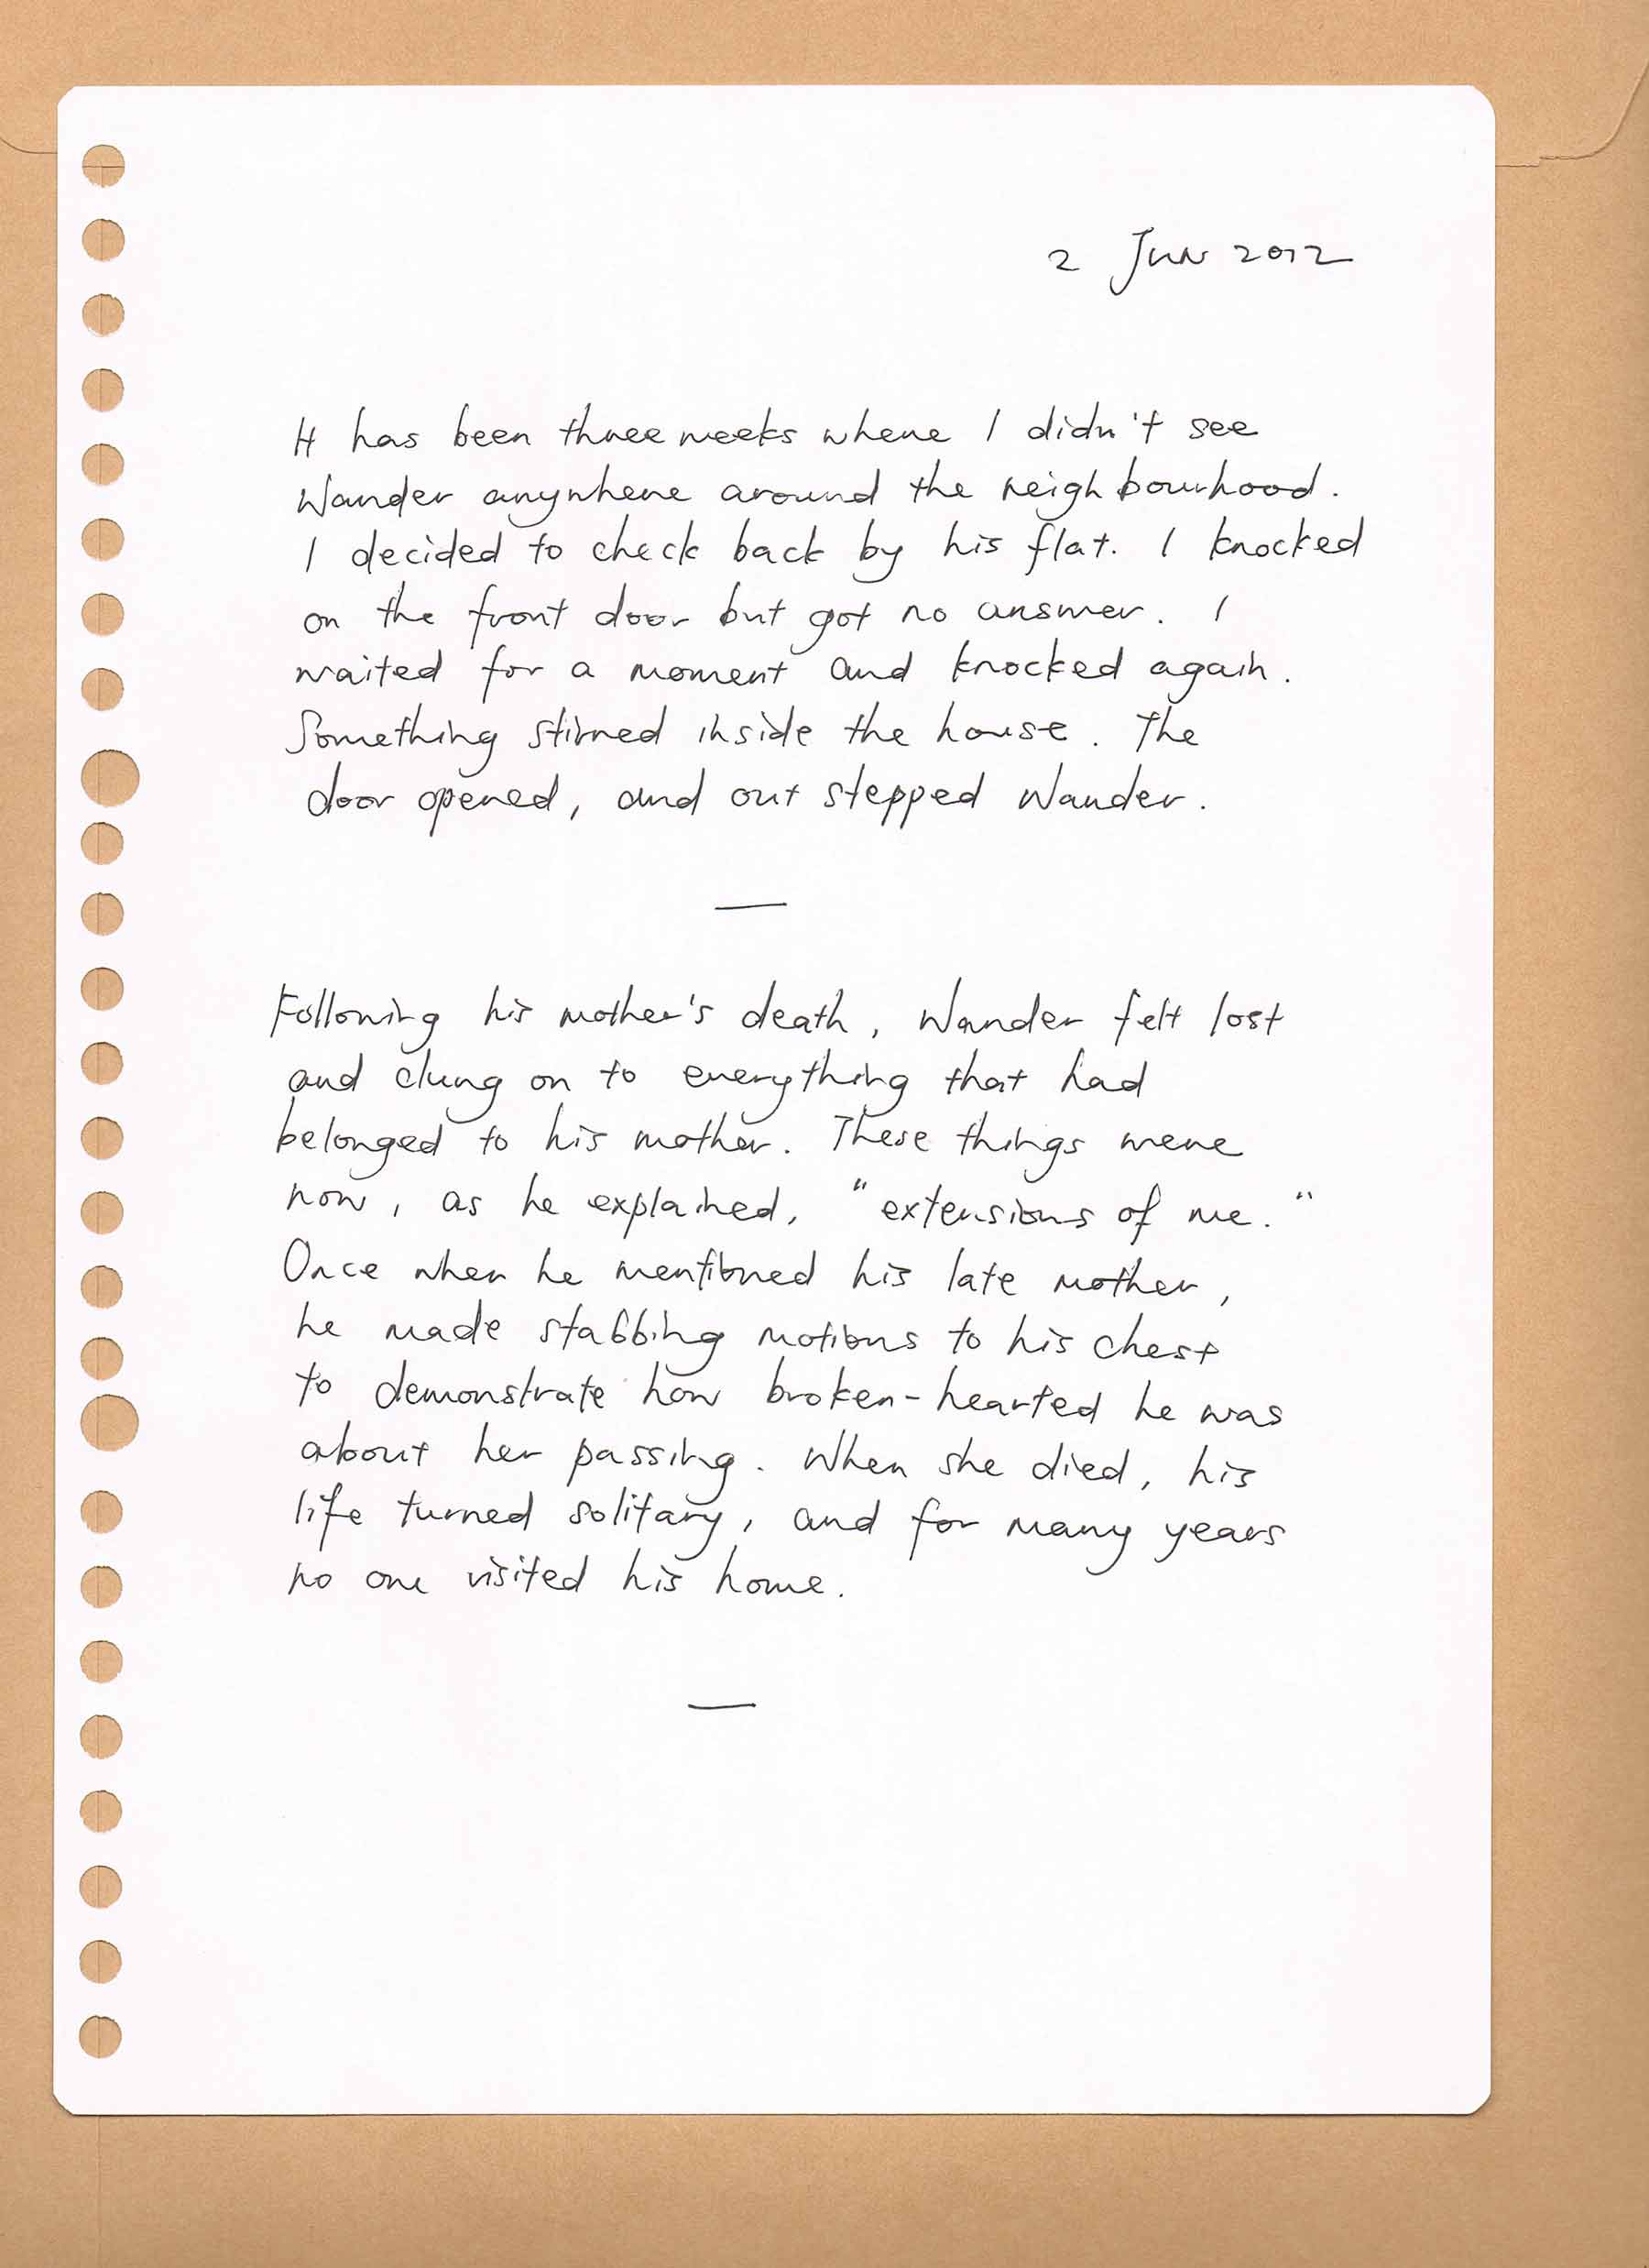 2 Jun 2012
It has been three weeks where I didn't see
Wander anywhere around the neighbourhood.
I decided to check back by his flat. I knocked
on the front door but got no answer. I
waited for a moment and knocked again.
Something stirred inside the house. The
door opened, and out stepped Wander.
—
Following his mother's death, Wander felt lost
and clung on to everything that had
belonged to his mother. These things were
now, as he explained, "extensions of me."
Once when he mentioned his late mother,
he made stabbing motions to his chest
to demonstrate how broken-hearted he was
about her passing. When she died, his
life turned solitary, and for many years
no one visited his home.
—